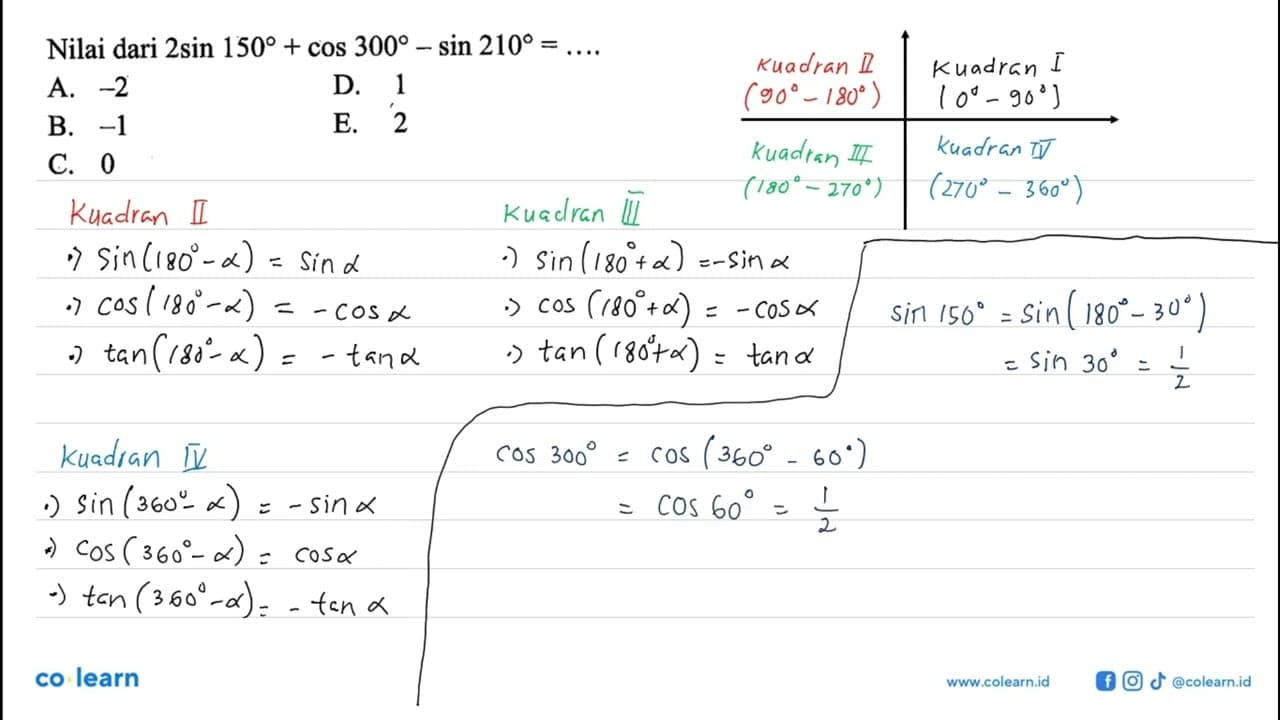 Nilai dari 2sin 150° + cos 300° – sin 210° = ....
A. –2
B. –1
C. 0
D. 1
E. 2
Kuadran II
(90° – 180°)
Kuadran I
(0° – 90°)
Kuadran III
(180° – 270°)
Kuadran IV
(270° – 360°)
Kuadran II
·) sin(180° – α) = sin α
·) cos(180° – α) = – cos α
·) tan(180° – α) = – tan α
Kuadran III
·) sin(180° + α) = –sin α
·) cos(180° + α) = –cos α
·) tan(180° + α) = tan α
sin 150° = sin(180° – 30°)
= sin 30° = 1/2
Kuadran IV
·) sin(360° – α) = – sin α
·) cos(360° – α) = cos α
·) tan(360° – α) = – tan α
cos 300° = cos(360° – 60°)
= cos 60° = 1/2
co learn
www.colearn.id
@colearn.id